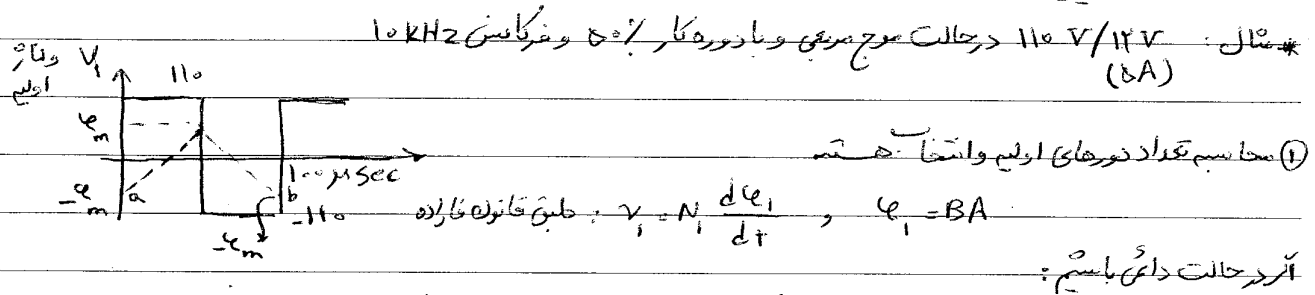 * مثال : ۱۱۰ V/۱۲ V درحالت موج مربعی و با دوره کار ٪۵۰ و فرکانس ۱۰ kHz
(۵A)
ولتاژ اولیه V₁
۱۱۰
φm
-φm
a
b
۱۰۰ μsec
-۱۱۰
-φm
① محاسبه تعداد دورهای اولیه و انتخاب هسته
طبق قانون فاراده : V₁ = N₁ dφ₁/dt , φ₁ = BA
اگر در حالت دائمی باشیم :